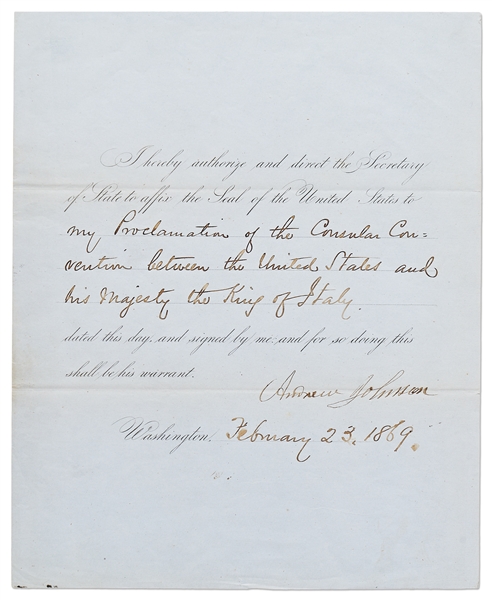 I hereby authorize and direct the Secretary
of State to affix the Seal of the United States to
my Proclamation of the Consular Con=
vention between the United States and
his Majesty the King of Italy.
dated this day, and signed by me: and for so doing this
shall be his warrant.
Andrew Johnson
Washington, February 23, 1869.